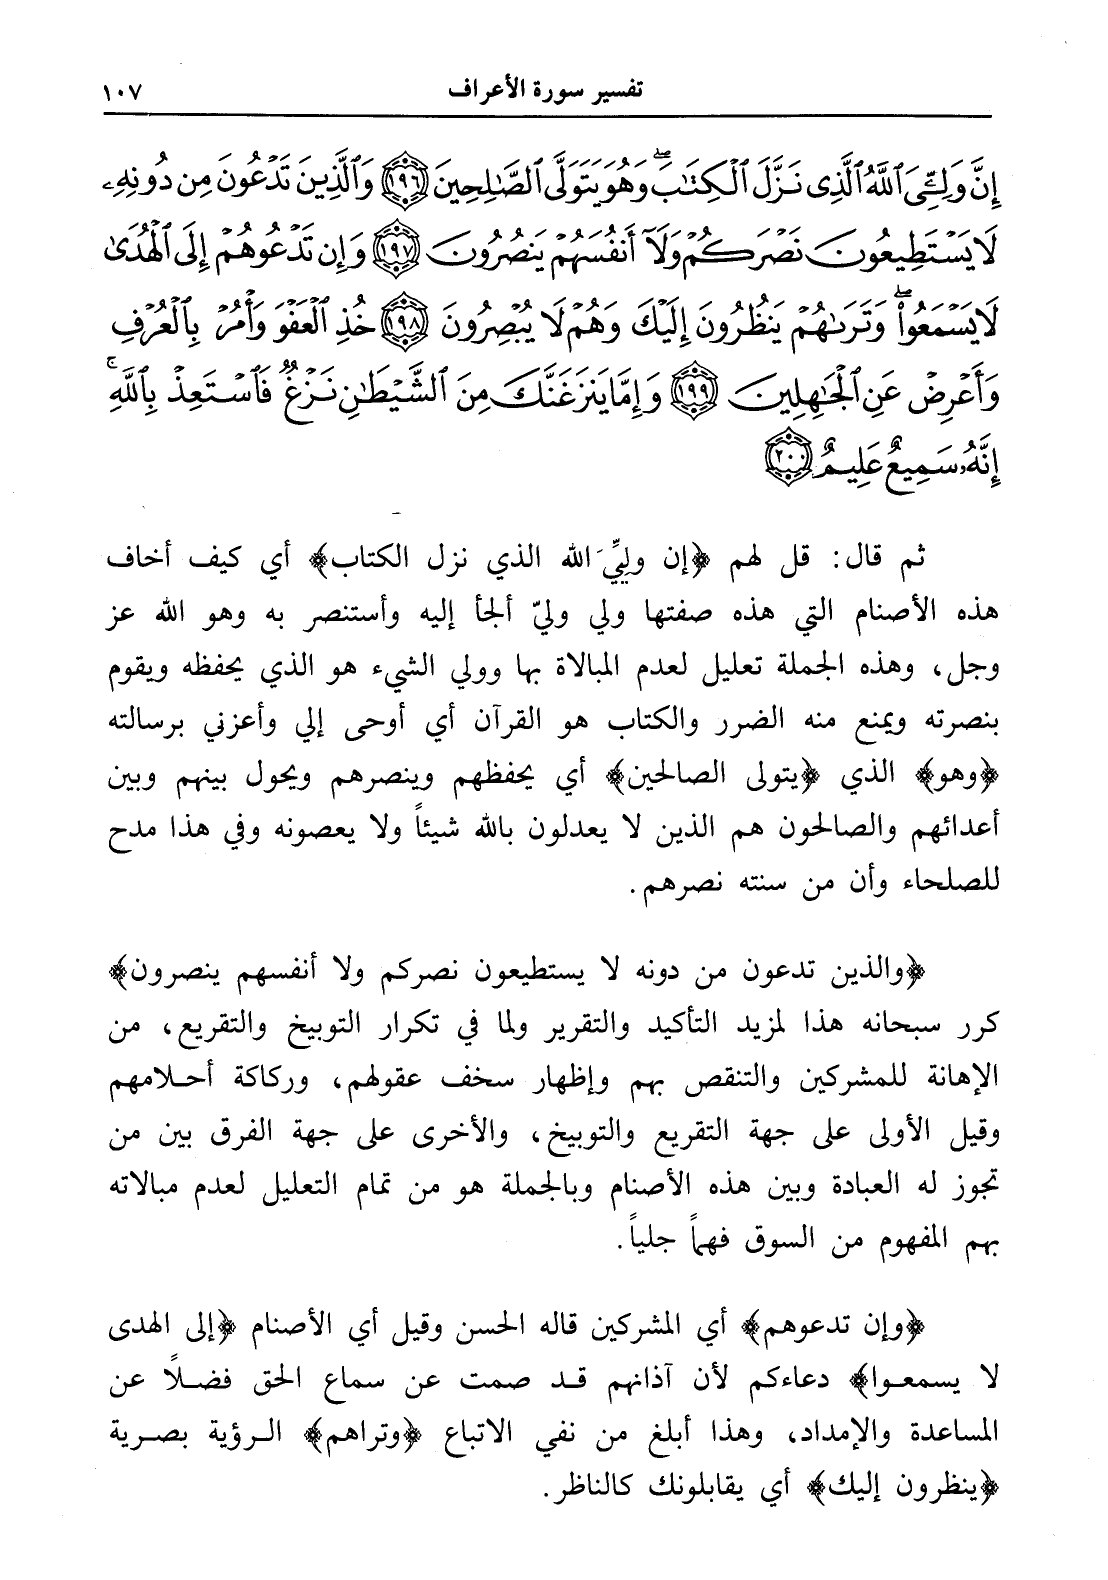 تفسير سورة الأعراف ١٠٧
إِنَّ وَلِـِّۧيَ ٱللَّهُ ٱلَّذِى نَزَّلَ ٱلْكِتَٰبَ ۖ وَهُوَ يَتَوَلَّى ٱلصَّٰلِحِينَ ١٩٦ وَٱلَّذِينَ تَدْعُونَ مِن دُونِهِۦ
لَا يَسْتَطِيعُونَ نَصْرَكُمْ وَلَآ أَنفُسَهُمْ يَنصُرُونَ ١٩٧ وَإِن تَدْعُوهُمْ إِلَى ٱلْهُدَىٰ
لَا يَسْمَعُوا۟ ۖ وَتَرَىٰهُمْ يَنظُرُونَ إِلَيْكَ وَهُمْ لَا يُبْصِرُونَ ١٩٨ خُذِ ٱلْعَفْوَ وَأْمُرْ بِٱلْعُرْفِ
وَأَعْرِضْ عَنِ ٱلْجَٰهِلِينَ ١٩٩ وَإِمَّا يَنزَغَنَّكَ مِنَ ٱلشَّيْطَٰنِ نَزْغٌ فَٱسْتَعِذْ بِٱللَّهِ ۚ
إِنَّهُۥ سَمِيعٌ عَلِيمٌ ٢٠٠
ثم قال: قل لهم ﴿إن وليِّيَ الله الذي نزل الكتاب﴾ أي كيف أخاف
هذه الأصنام التي هذه صفتها ولي وليّ ألجأ إليه وأستنصر به وهو الله عز
وجل، وهذه الجملة تعليل لعدم المبالاة بها وولي الشيء هو الذي يحفظه ويقوم
بنصرته ويمنع منه الضرر والكتاب هو القرآن أي أوحى إلي وأعزني برسالته
﴿وهو﴾ الذي ﴿يتولى الصالحين﴾ أي يحفظهم وينصرهم ويحول بينهم وبين
أعدائهم والصالحون هم الذين لا يعدلون بالله شيئاً ولا يعصونه وفي هذا مدح
للصلحاء وأن من سنته نصرهم.
﴿والذين تدعون من دونه لا يستطيعون نصركم ولا أنفسهم ينصرون﴾
كرر سبحانه هذا لمزيد التأكيد والتقرير ولما في تكرار التوبيخ والتقريع، من
الإهانة للمشركين والتنقص بهم وإظهار سخف عقولهم، وركاكة أحلامهم
وقيل الأولى على جهة التقريع والتوبيخ، والأخرى على جهة الفرق بين من
تجوز له العبادة وبين هذه الأصنام وبالجملة هو من تمام التعليل لعدم مبالاته
بهم المفهوم من السوق فهماً جلياً.
﴿وإن تدعوهم﴾ أي المشركين قاله الحسن وقيل أي الأصنام ﴿إلى الهدى
لا يسمعوا﴾ دعاءكم لأن آذانهم قد صمت عن سماع الحق فضلاً عن
المساعدة والإمداد، وهذا أبلغ من نفي الاتباع ﴿وتراهم﴾ الرؤية بصرية
﴿ينظرون إليك﴾ أي يقابلونك كالناظر.